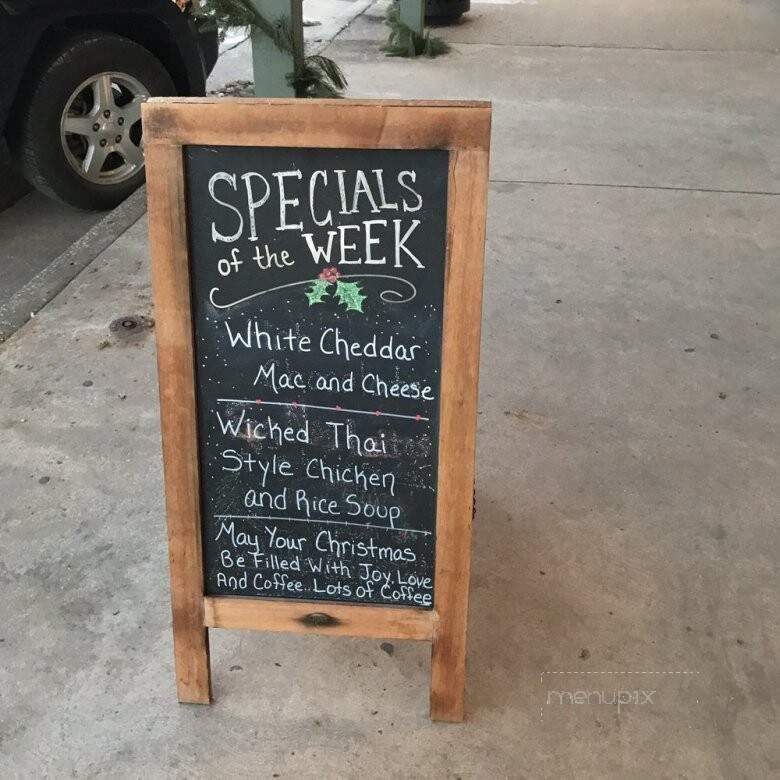 SPECIALS
of the WEEK
White Cheddar
Mac and Cheese
Wicked Thai
Style Chicken
and Rice Soup
May Your Christmas
Be Filled With Joy, Love
And Coffee.. Lots of Coffee
menupix